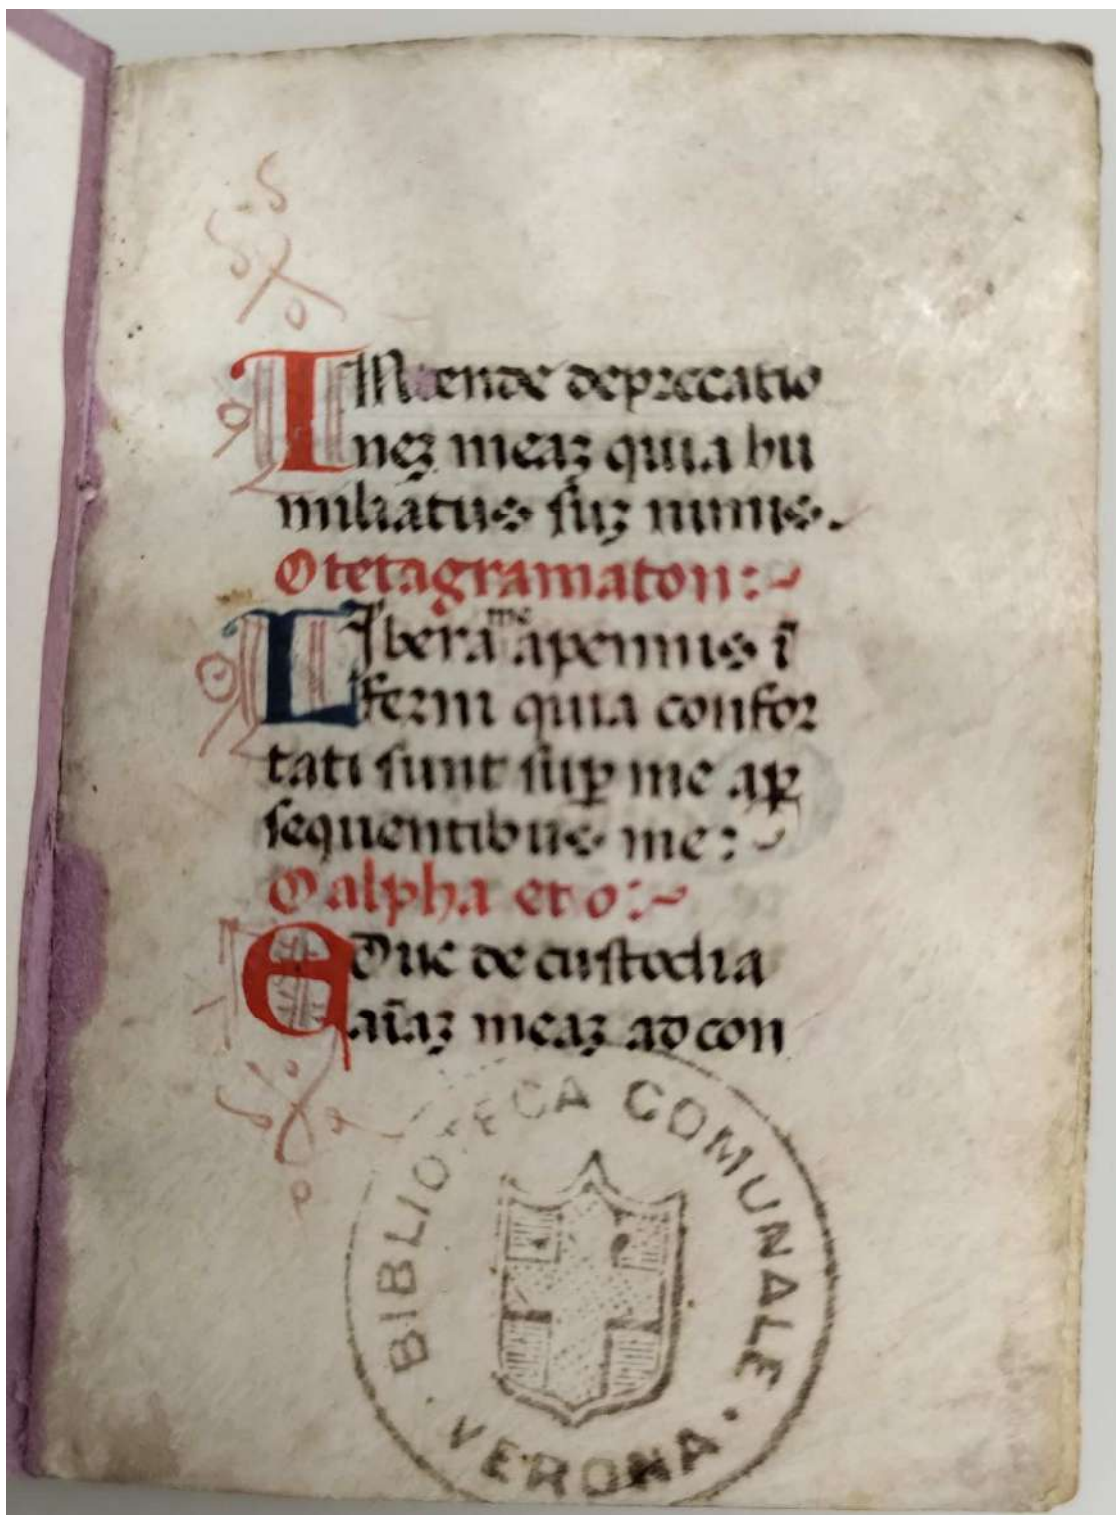 INtende deprecatio
neꝫ meaꝫ quia hu
miliatus suꝫ nimis.
O tetagramaton:~
LIbera me apennis ī
ferni quia confor
tati sunt suꝑ me aꝑ
sequentibus me:~
O alpha et o:~
EDuc de custodia
aīaꝫ meaꝫ ad con
BIBLIOTECA COMUNALE
· VERONA ·